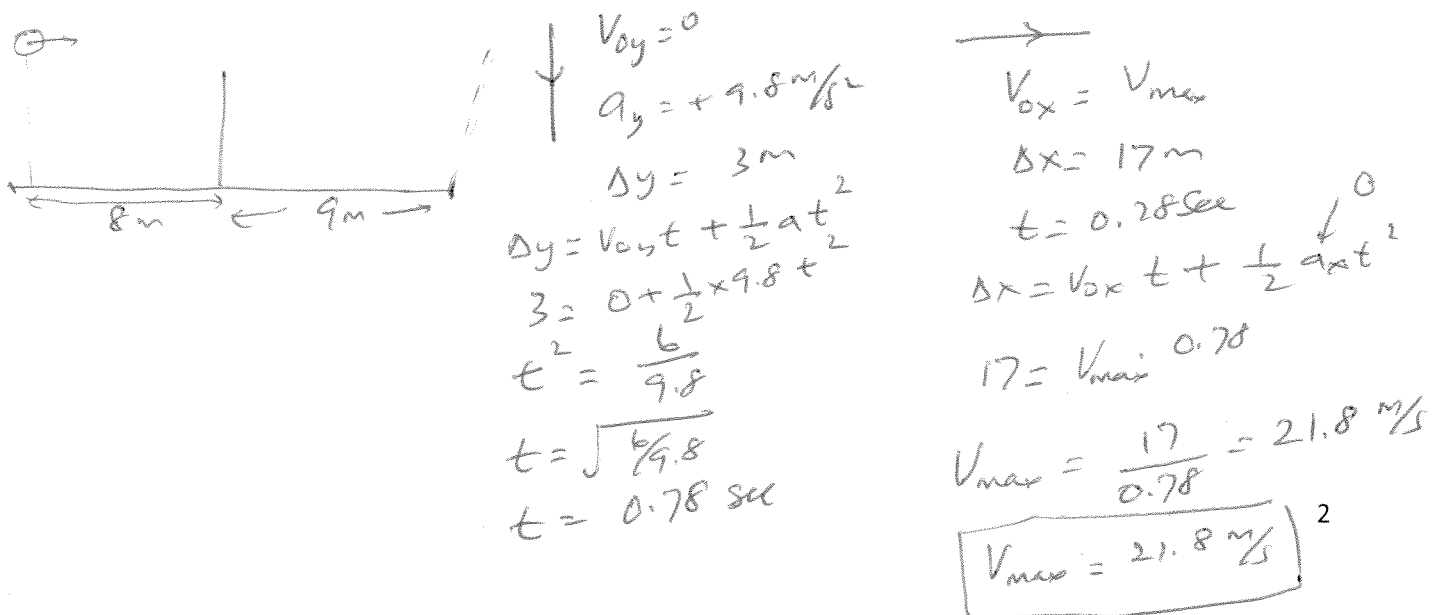 8m
9m
V₀y = 0
a_y = + 9.8 m/s²
Δy = 3m
Δy = V₀y t + 1/2 a t²
3 = 0 + 1/2 × 9.8 t²
t² = 6/9.8
t = √6/9.8
t = 0.78 sec
V₀x = Vmax
Δx = 17m
t = 0.28 Sec
0
Δx = V₀x t + 1/2 a_x t²
17 = Vmax · 0.78
Vmax = 17/0.78 = 21.8 m/s
Vmax = 21.8 m/s
2